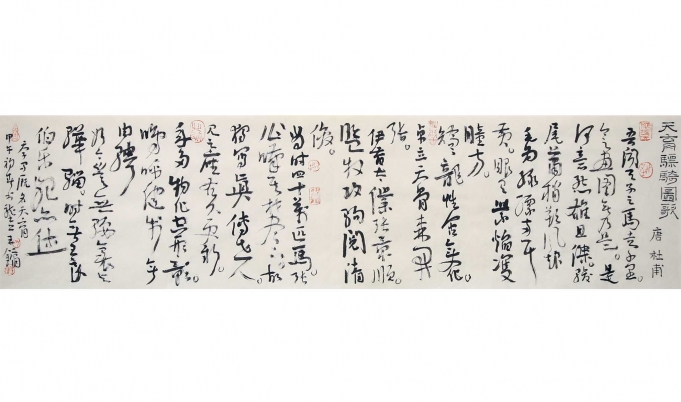 天育驃騎圖歌
唐 杜甫
吾聞天子之馬走千里。
今之畫圖無乃是。是
何意態雄且傑。駿
尾蕭梢朔風起
毛為綠縹兩耳
黃。眼有紫焰雙
瞳方。
矯龍性合變化
卓立天骨森開
張。
伊昔太僕張景順。
監牧攻駒閱清
峻。
當時四十萬匹馬。張
公嘆其材盡下。故
獨寫真傳世人。
見之座右久更新。
年多物化空形影。
嗚呼健步無
由騁
如今豈無騕褭與
驊騮。時無王良
伯樂死即休
甲午